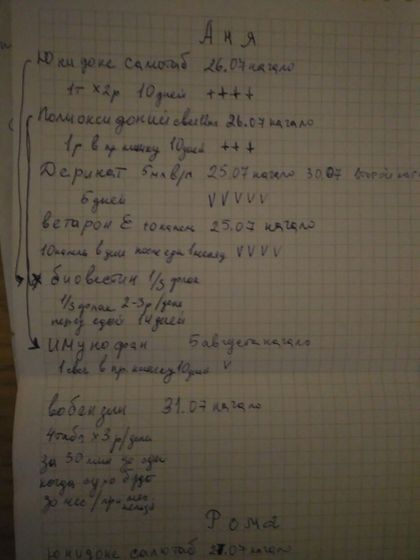 Аня
Юнидокс салютаб 26.07 начало
1т х2р 10 дней ++++
Полиоксидоний свечи 26.07 начало
1р в пр. кишку 10 дней +++
Деринат 5мл в/м 25.07 начало 30.07 второй
5 дней VVVVV
ветарон Е 10 капель 25.07 начало
10 капель в день после еды VVVV
биовестин 1/3 флак
1/3 флак 2-3р/день
перед едой 14 дней
имунофан 5 августа начало
1 свеч в пр. кишку 10 дней V
вобензим 31.07 начало
4таб х 3р/день
за 30 мин до еды
когда одно будет
Рома
Юнидокс салютаб 27.07 начало